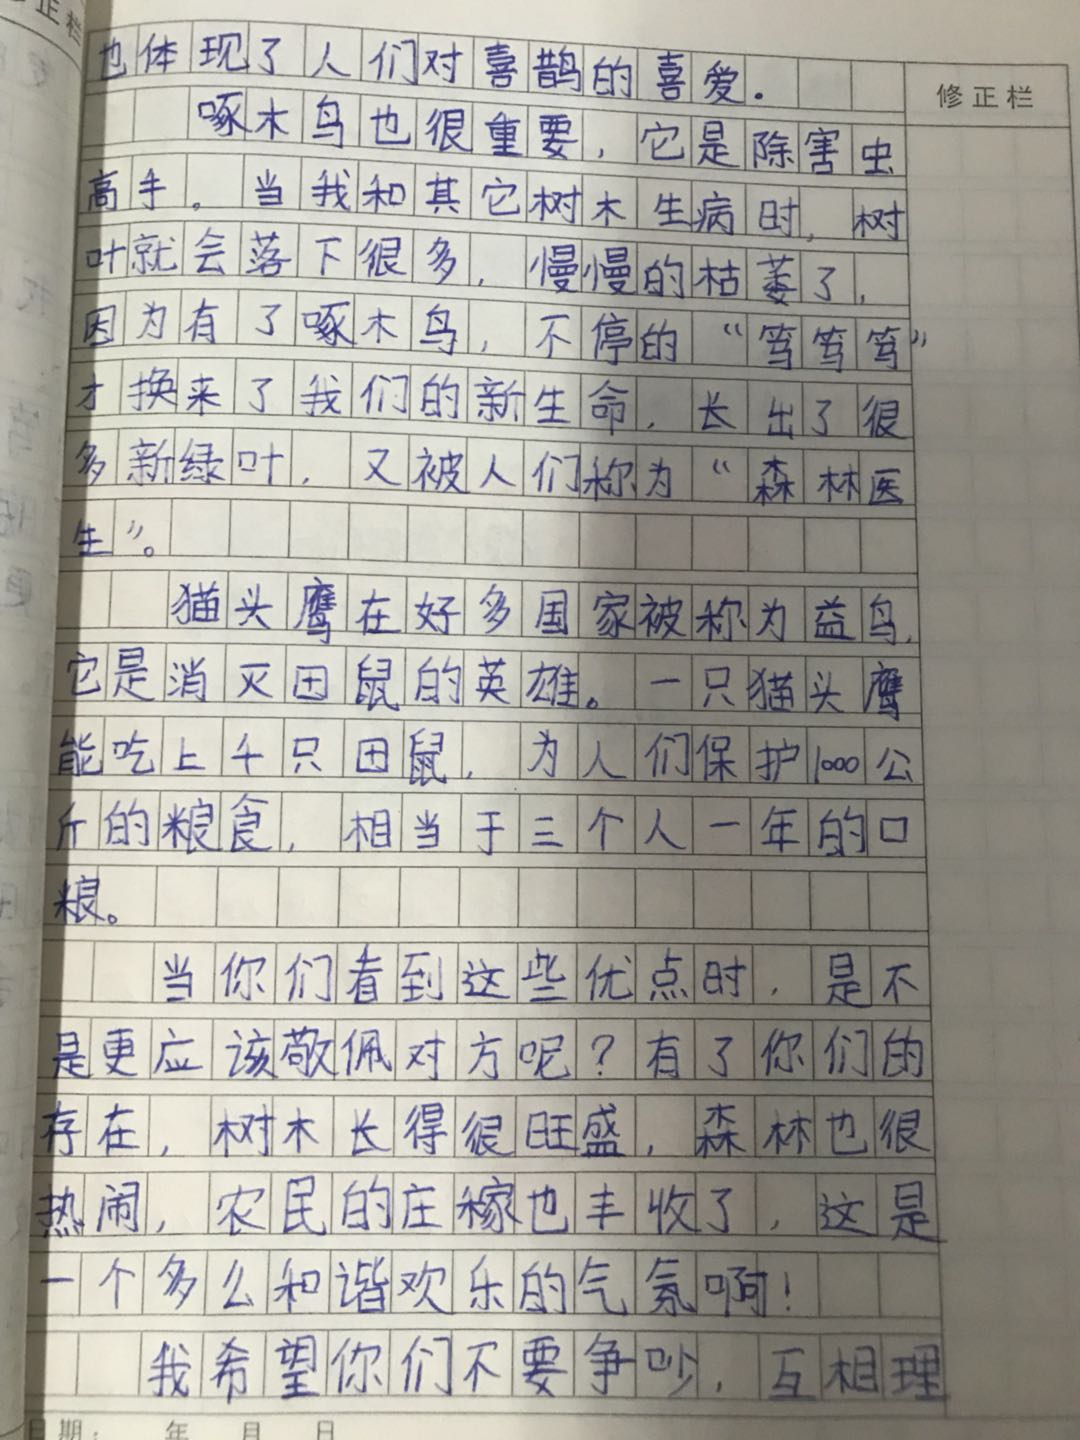 正栏
也体现了人们对喜鹊的喜爱.
修正栏
啄木鸟也很重要,它是除害虫
高手。当我和其它树木生病时,树
叶就会落下很多,慢慢的枯萎了,
因为有了啄木鸟,不停的“笃笃笃”
才换来了我们的新生命,长出了很
多新绿叶,又被人们称为“森林医
生”。
猫头鹰在好多国家被称为益鸟,
它是消灭田鼠的英雄。一只猫头鹰
能吃上千只田鼠,为人们保护1000公
斤的粮食,相当于三个人一年的口
粮。
当你们看到这些优点时,是不
是更应该敬佩对方呢?有了你们的
存在,树木长得很旺盛,森林也很
热闹,农民的庄稼也丰收了,这是
一个多么和谐欢乐的气氛啊!
我希望你们不要争吵,互相理
日期: 年 月 日